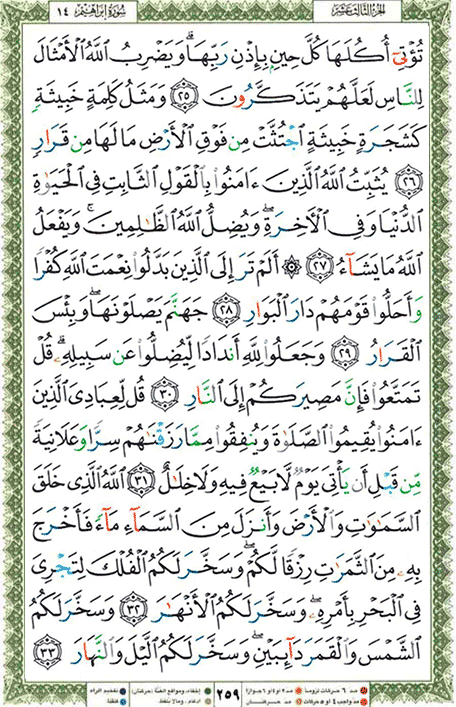 سورة إبراهيم ١٤
الجزء الثالث عشر
تُؤْتِىٓ أُكُلَهَا كُلَّ حِينٍۭ بِإِذْنِ رَبِّهَاۗ وَيَضْرِبُ ٱللَّهُ ٱلْأَمْثَالَ
لِلنَّاسِ لَعَلَّهُمْ يَتَذَكَّرُونَ ٢٥ وَمَثَلُ كَلِمَةٍ خَبِيثَةٍ
كَشَجَرَةٍ خَبِيثَةٍ ٱجْتُثَّتْ مِن فَوْقِ ٱلْأَرْضِ مَا لَهَا مِن قَرَارٍ
٢٦ يُثَبِّتُ ٱللَّهُ ٱلَّذِينَ ءَامَنُوا۟ بِٱلْقَوْلِ ٱلثَّابِتِ فِى ٱلْحَيَوٰةِ
ٱلدُّنْيَا وَفِى ٱلْءَاخِرَةِۖ وَيُضِلُّ ٱللَّهُ ٱلظَّـٰلِمِينَۚ وَيَفْعَلُ
ٱللَّهُ مَا يَشَآءُ ٢٧ ۞ أَلَمْ تَرَ إِلَى ٱلَّذِينَ بَدَّلُوا۟ نِعْمَتَ ٱللَّهِ كُفْرًا
وَأَحَلُّوا۟ قَوْمَهُمْ دَارَ ٱلْبَوَارِ ٢٨ جَهَنَّمَ يَصْلَوْنَهَاۖ وَبِئْسَ
ٱلْقَرَارُ ٢٩ وَجَعَلُوا۟ لِلَّهِ أَندَادًا لِّيُضِلُّوا۟ عَن سَبِيلِهِۦۗ قُلْ
تَمَتَّعُوا۟ فَإِنَّ مَصِيرَكُمْ إِلَى ٱلنَّارِ ٣٠ قُل لِّعِبَادِىَ ٱلَّذِينَ
ءَامَنُوا۟ يُقِيمُوا۟ ٱلصَّلَوٰةَ وَيُنفِقُوا۟ مِمَّا رَزَقْنَـٰهُمْ سِرًّا وَعَلَانِيَةً
مِّن قَبْلِ أَن يَأْتِىَ يَوْمٌ لَّا بَيْعٌ فِيهِ وَلَا خِلَـٰلٌ ٣١ ٱللَّهُ ٱلَّذِى خَلَقَ
ٱلسَّمَـٰوَٰتِ وَٱلْأَرْضَ وَأَنزَلَ مِنَ ٱلسَّمَآءِ مَآءً فَأَخْرَجَ
بِهِۦ مِنَ ٱلثَّمَرَٰتِ رِزْقًا لَّكُمْۖ وَسَخَّرَ لَكُمُ ٱلْفُلْكَ لِتَجْرِىَ
فِى ٱلْبَحْرِ بِأَمْرِهِۦۖ وَسَخَّرَ لَكُمُ ٱلْأَنْهَـٰرَ ٣٢ وَسَخَّرَ لَكُمُ
ٱلشَّمْسَ وَٱلْقَمَرَ دَآئِبَيْنِۖ وَسَخَّرَ لَكُمُ ٱلَّيْلَ وَٱلنَّهَارَ ٣٣
مد ٦ حركات لزوماً مد ٢ او ٤ او ٦ جوازاً
مد واجب ٤ او ٥ حركات مد حركتان
٢٥٩
إخفاء، ومواقع الغنّة (حركتان) تفخيم الراء
ادغام، ومالا يلفظ قلقلة